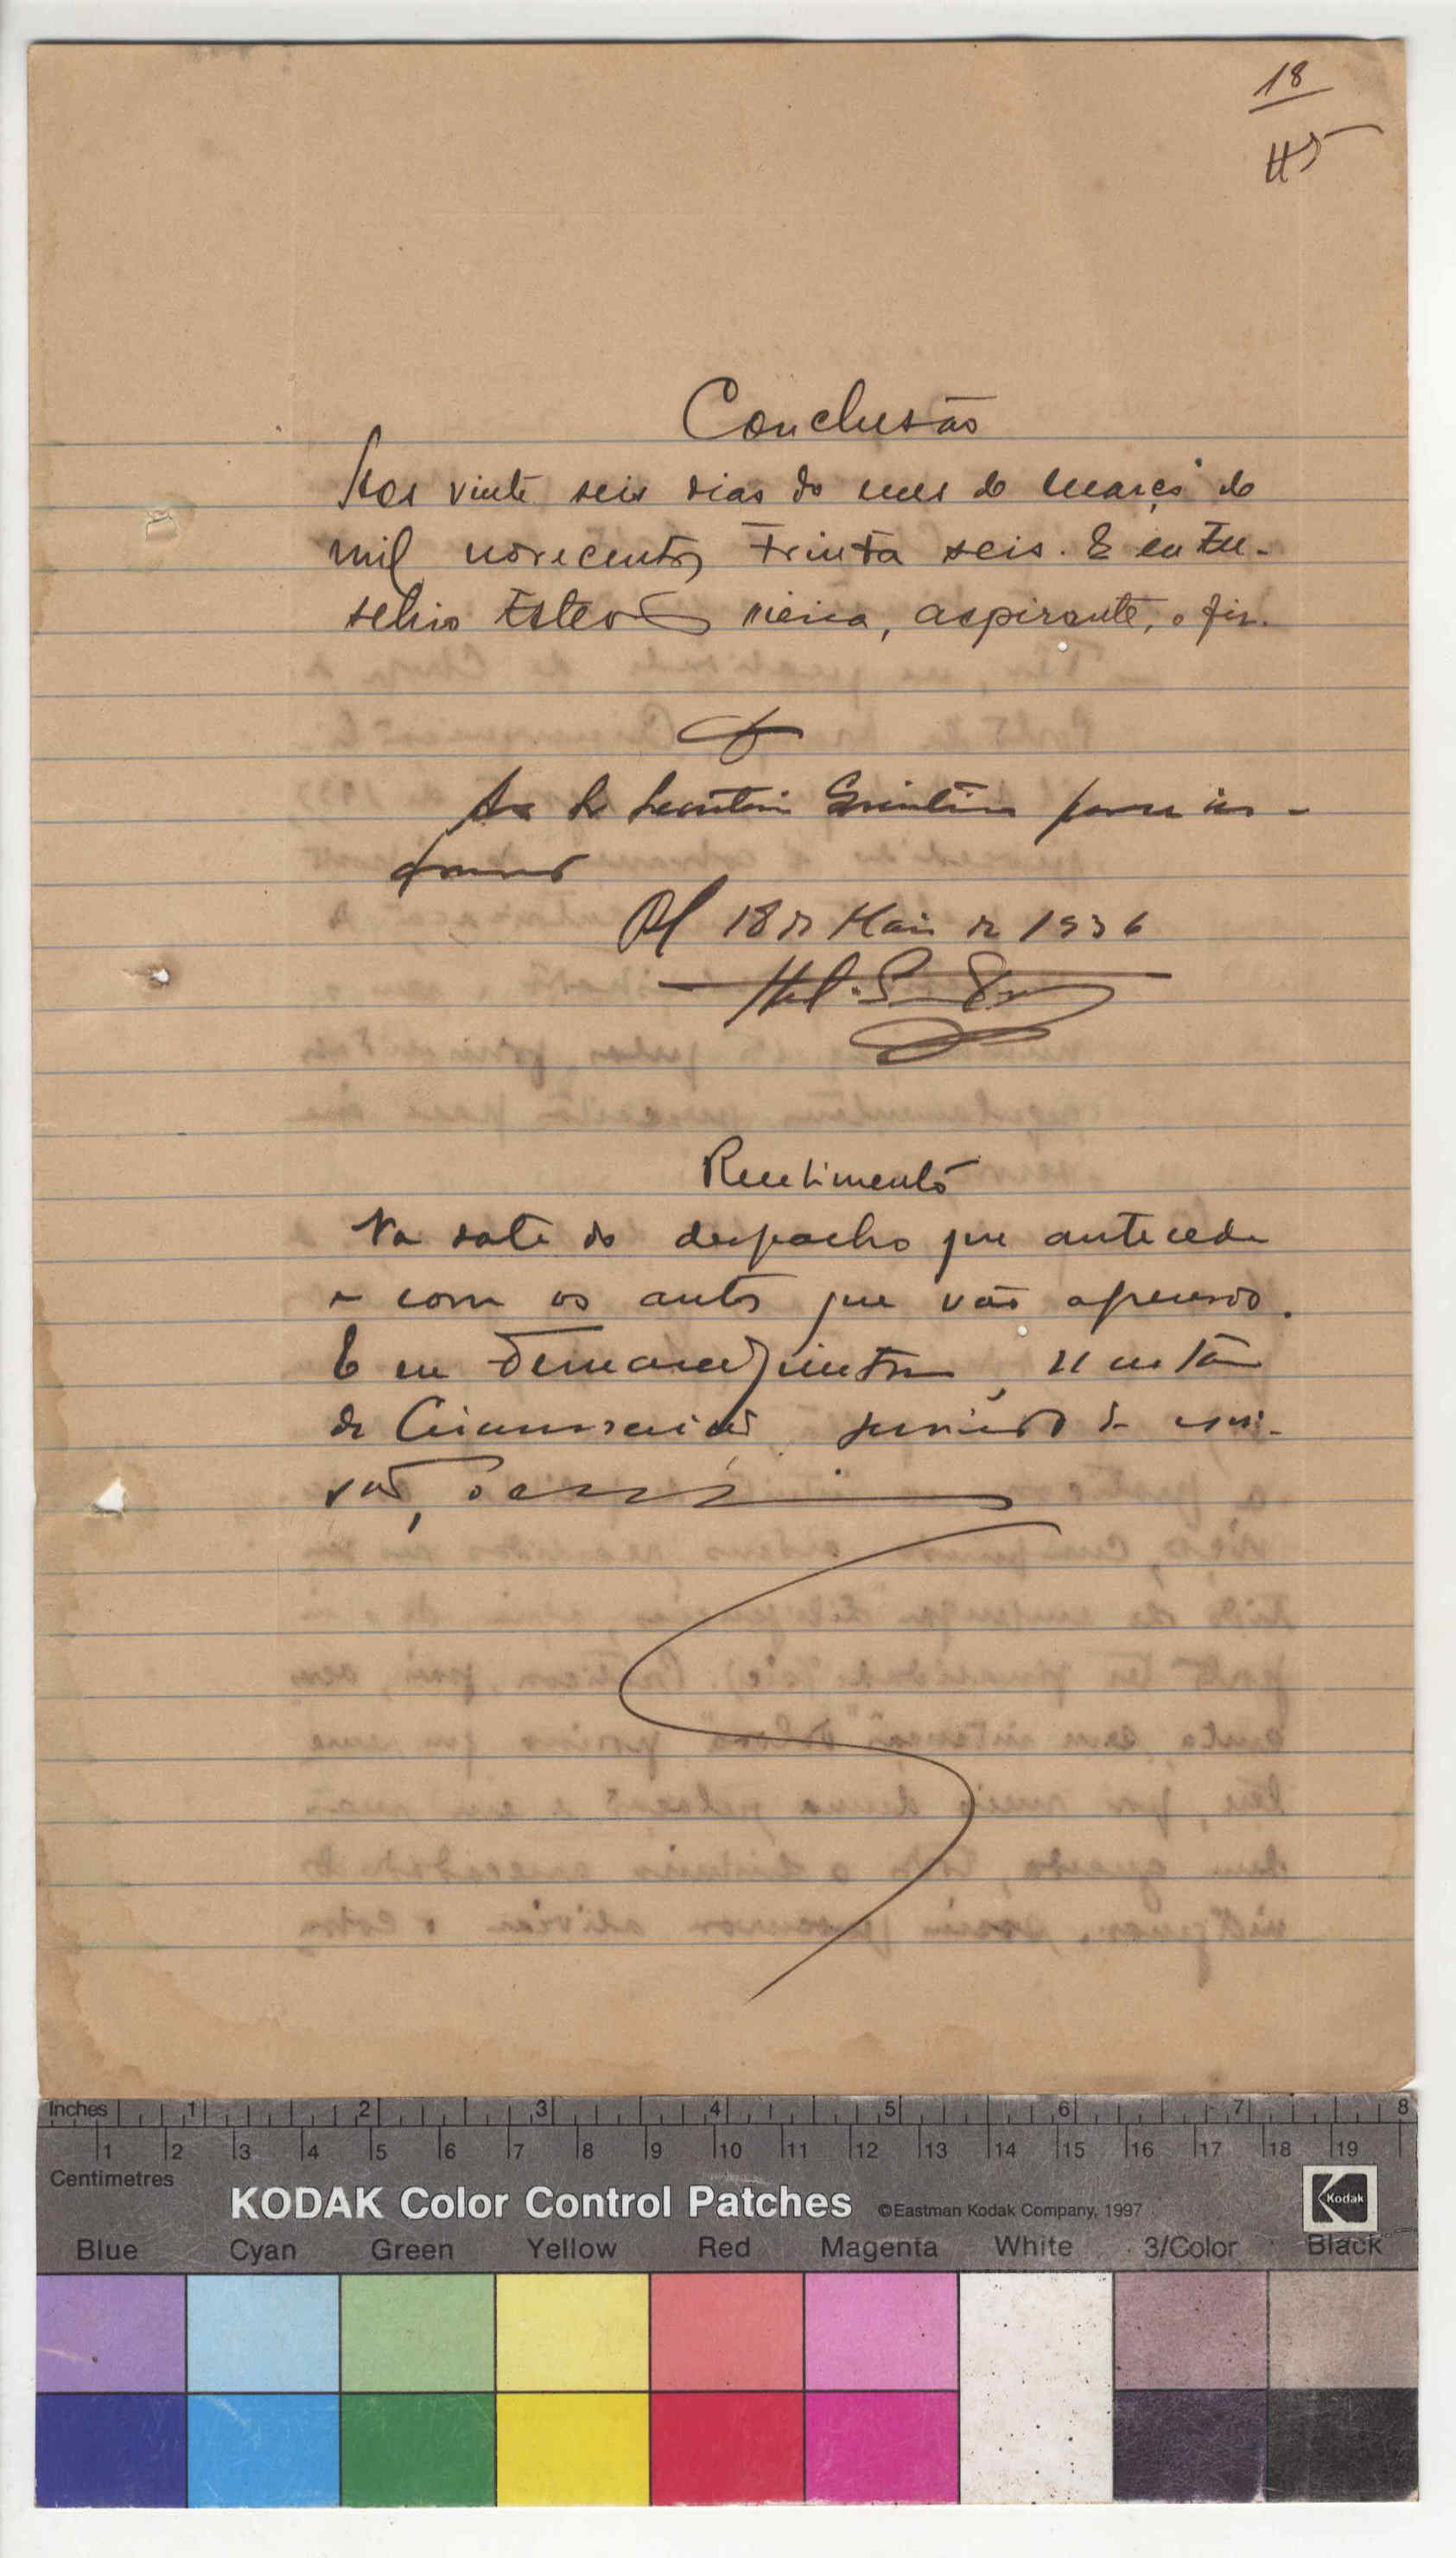 18
Conclusão
Aos vinte seis dias do mes de Março de
mil novecentos trinta seis. E eu Eu-
sebio Esteves Vieira, aspirante, o fiz.
Ao Sr Secretario para in-
formar
18 de Maio de 1936
Recebimento
Na data do despacho que antecede
e com os autos que vão apenso.
E eu
de Circunscrição servindo de escri-
vão,
Inches 1 2 3 4 5 6 7 8
1 2 3 4 5 6 7 8 9 10 11 12 13 14 15 16 17 18 19
Centimetres
KODAK Color Control Patches ©Eastman Kodak Company, 1997 Kodak
Blue Cyan Green Yellow Red Magenta White 3/Color Black